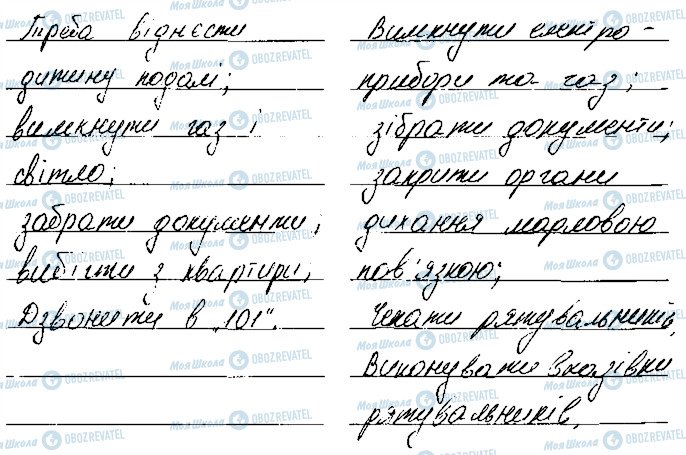 Треба віднєсти
дитину подалі;
вимкнути газ і
світло;
забрати документи;
вибігти з квартири;
Дзвонити в „101".
Вимкнути електро-
прибори та газ;
зібрати документи;
закрити органи
дихання марловою
пов'язкою;
Чекати рятувальників,
Виконувати вказівки
рятувальників.